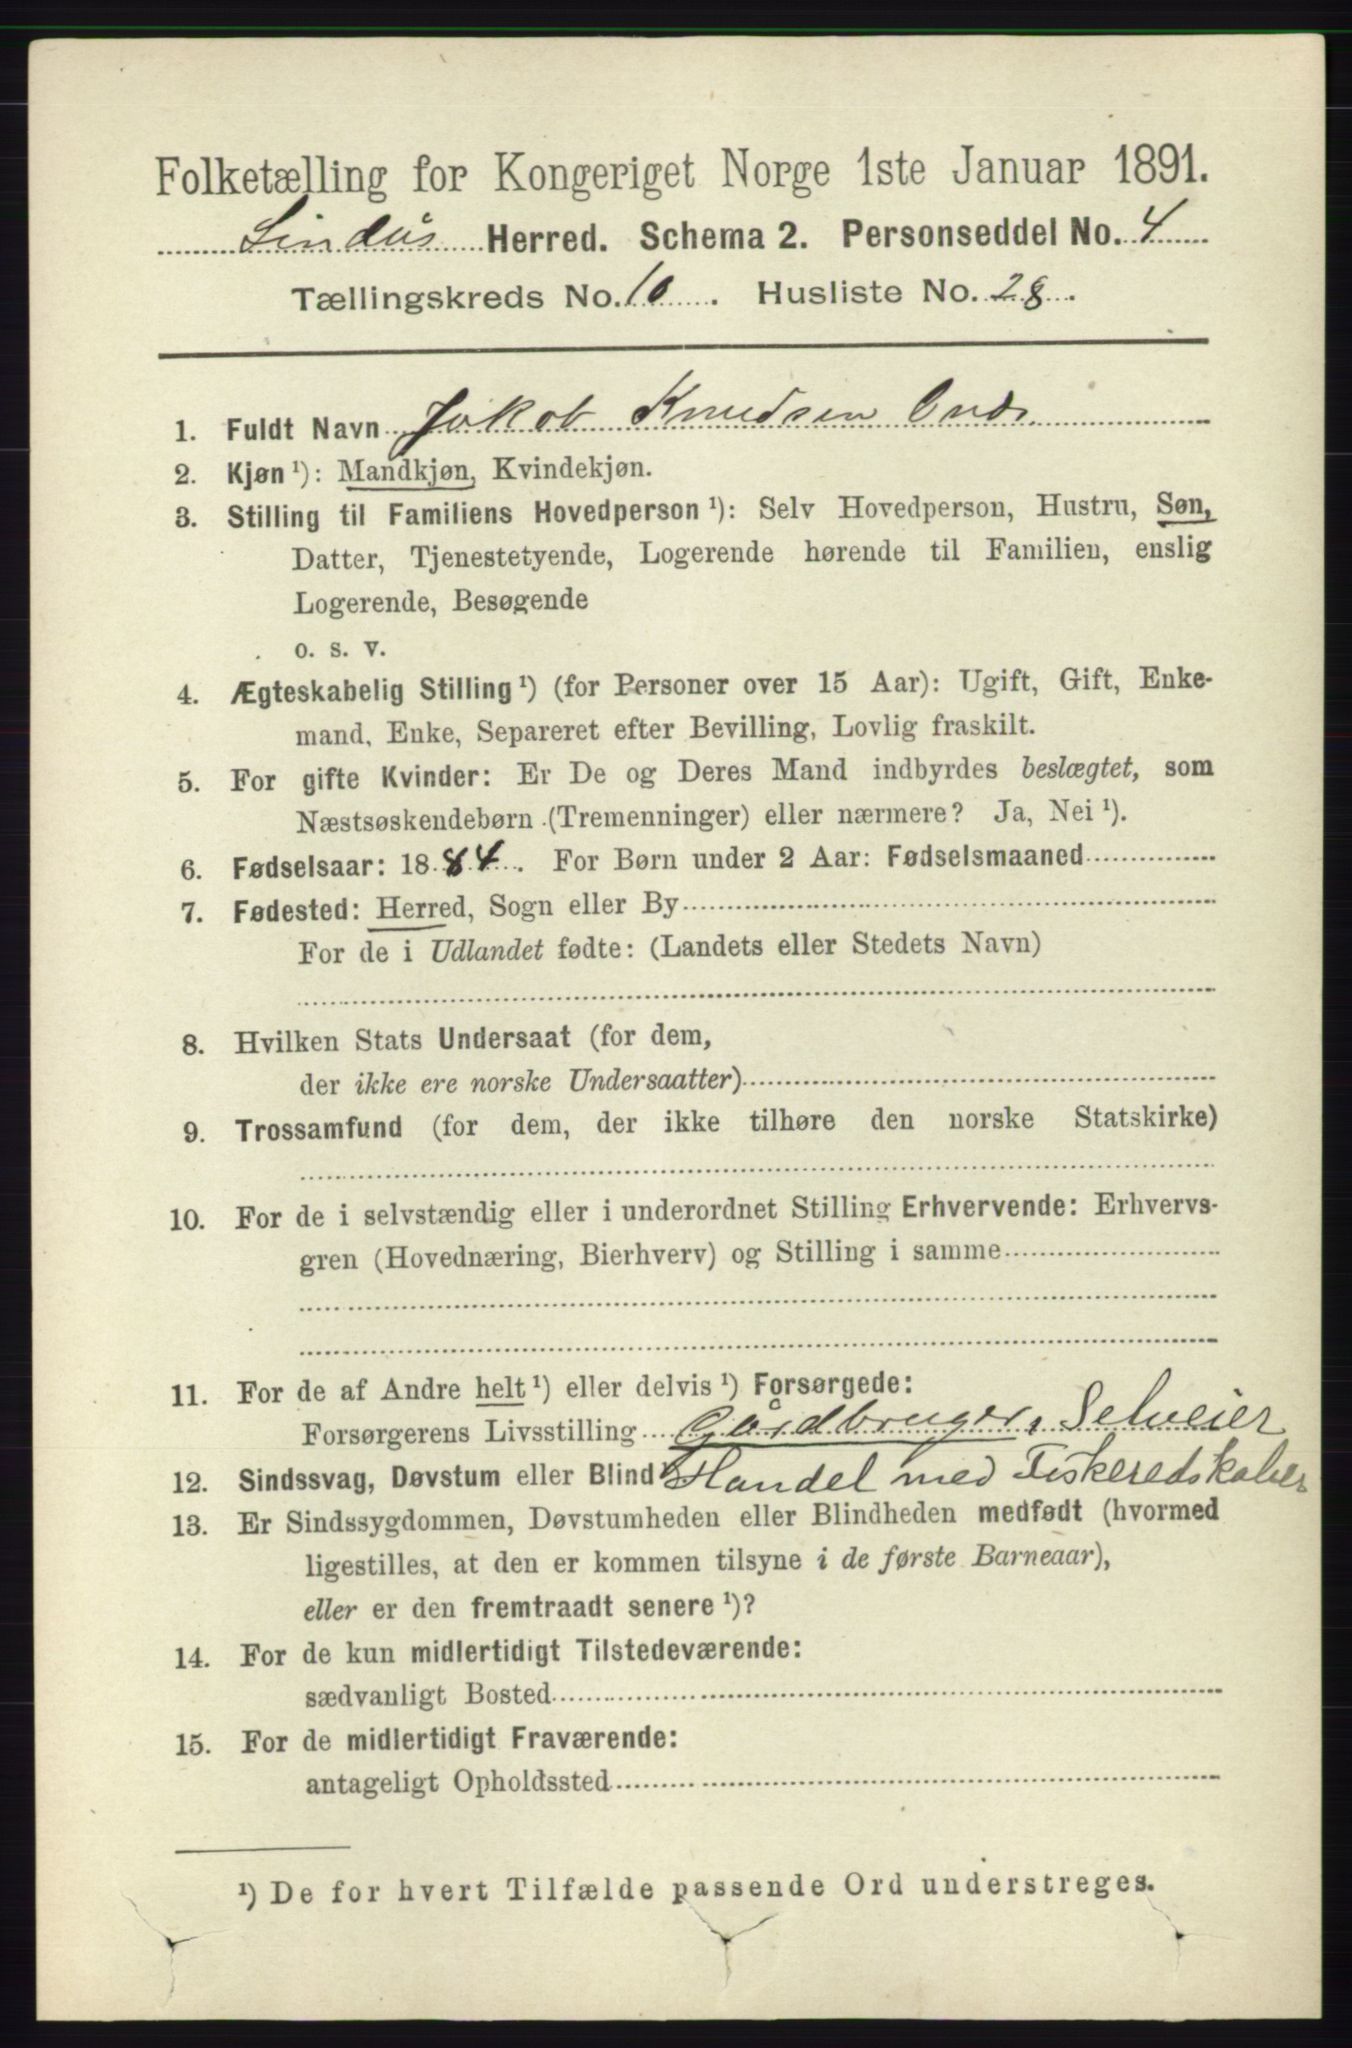 Folketælling for Kongeriget Norge 1ste Januar 1891.
Lindås Herred. Schema 2. Personseddel No. 4
Tællingskreds No. 10. Husliste No. 28.
1. Fuldt Navn Jakob Knudsen
2. Kjøn ¹): Mandkjøn, Kvindekjøn.
3. Stilling til Familiens Hovedperson ¹): Selv Hovedperson, Hustru, Søn,
Datter, Tjenestetyende, Logerende hørende til Familien, enslig
Logerende, Besøgende
o. s. v.
4. Ægteskabelig Stilling ¹) (for Personer over 15 Aar): Ugift, Gift, Enke-
mand, Enke, Separeret efter Bevilling, Lovlig fraskilt.
5. For gifte Kvinder: Er De og Deres Mand indbyrdes beslægtet, som
Næstsøskendebørn (Tremenninger) eller nærmere? Ja, Nei ¹).
6. Fødselsaar: 1884. For Børn under 2 Aar: Fødselsmaaned
7. Fødested: Herred, Sogn eller By
For de i Udlandet fødte: (Landets eller Stedets Navn)
8. Hvilken Stats Undersaat (for dem,
der ikke ere norske Undersaatter)
9. Trossamfund (for dem, der ikke tilhøre den norske Statskirke)
10. For de i selvstændig eller i underordnet Stilling Erhvervende: Erhvervs-
gren (Hovednæring, Bierhverv) og Stilling i samme
11. For de af Andre helt ¹) eller delvis ¹) Forsørgede:
Forsørgerens Livsstilling Gårdbruger, Selveier
12. Sindssvag, Døvstum eller Blind ¹) Handel med Fiskeredskaber
13. Er Sindssygdommen, Døvstumheden eller Blindheden medfødt (hvormed
ligestilles, at den er kommen tilsyne i de første Barneaar),
eller er den fremtraadt senere ¹)?
14. For de kun midlertidigt Tilstedeværende:
sædvanligt Bosted
15. For de midlertidigt Fraværende:
antageligt Opholdssted
¹) De for hvert Tilfælde passende Ord understreges.